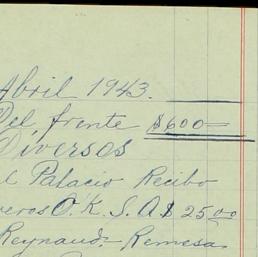 Abril 1943.
Del frente $600=
Diversos
el Palacio Recibo
eros O. K. S. A. $ 25.00
Reynaud. Remesa